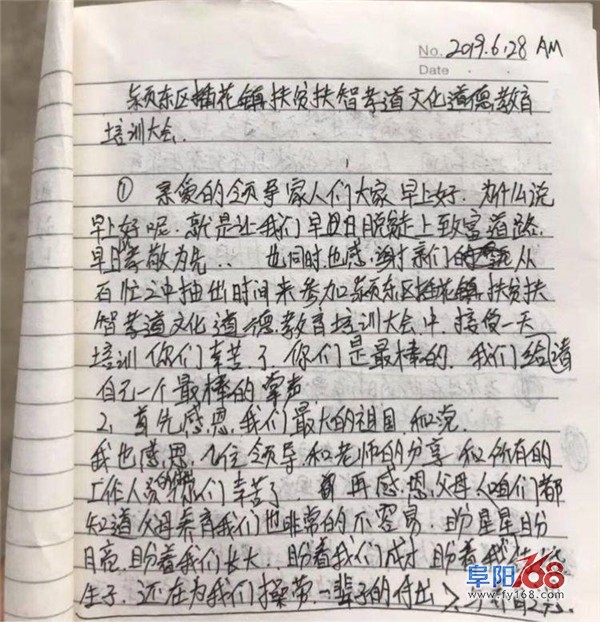 No. 2019.6.28 AM
Date
颍东区插花镇扶贫扶智孝道文化道德教育
培训大会.
① 亲爱的领导家人们大家早上好. 为什么说
早上好呢. 就是让我们早日脱贫走上致富道路.
早日孝敬为先.. 也同时也感谢亲们的 从
百忙之中抽出时间来参加颍东区插花镇扶贫扶
智孝道文化道德教育培训大会中. 接受一天
培训你们辛苦了 你们是最棒的. 我们给
自己一个最棒的掌声
2、首先感恩我们最大的祖国和
我也感恩几位领导和老师的分享 和所有的
工作人员 你们辛苦了 再感恩父母人咱们都
知道父母养育我们也非常的不容易. 盼星星盼
月亮. 盼着我们长大.. 盼着我们成才 盼着我
生子. 还在为我们操劳. 一辈子的付出
阜阳168
www.fy168.com